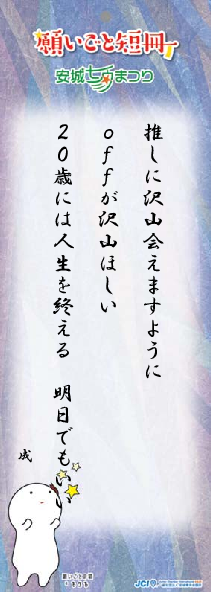 願いごと短冊
安城七夕まつり
推しに沢山会えますように
offが沢山ほしい
20歳には人生を終える 明日でもいい
成
願いごと短冊
JCI